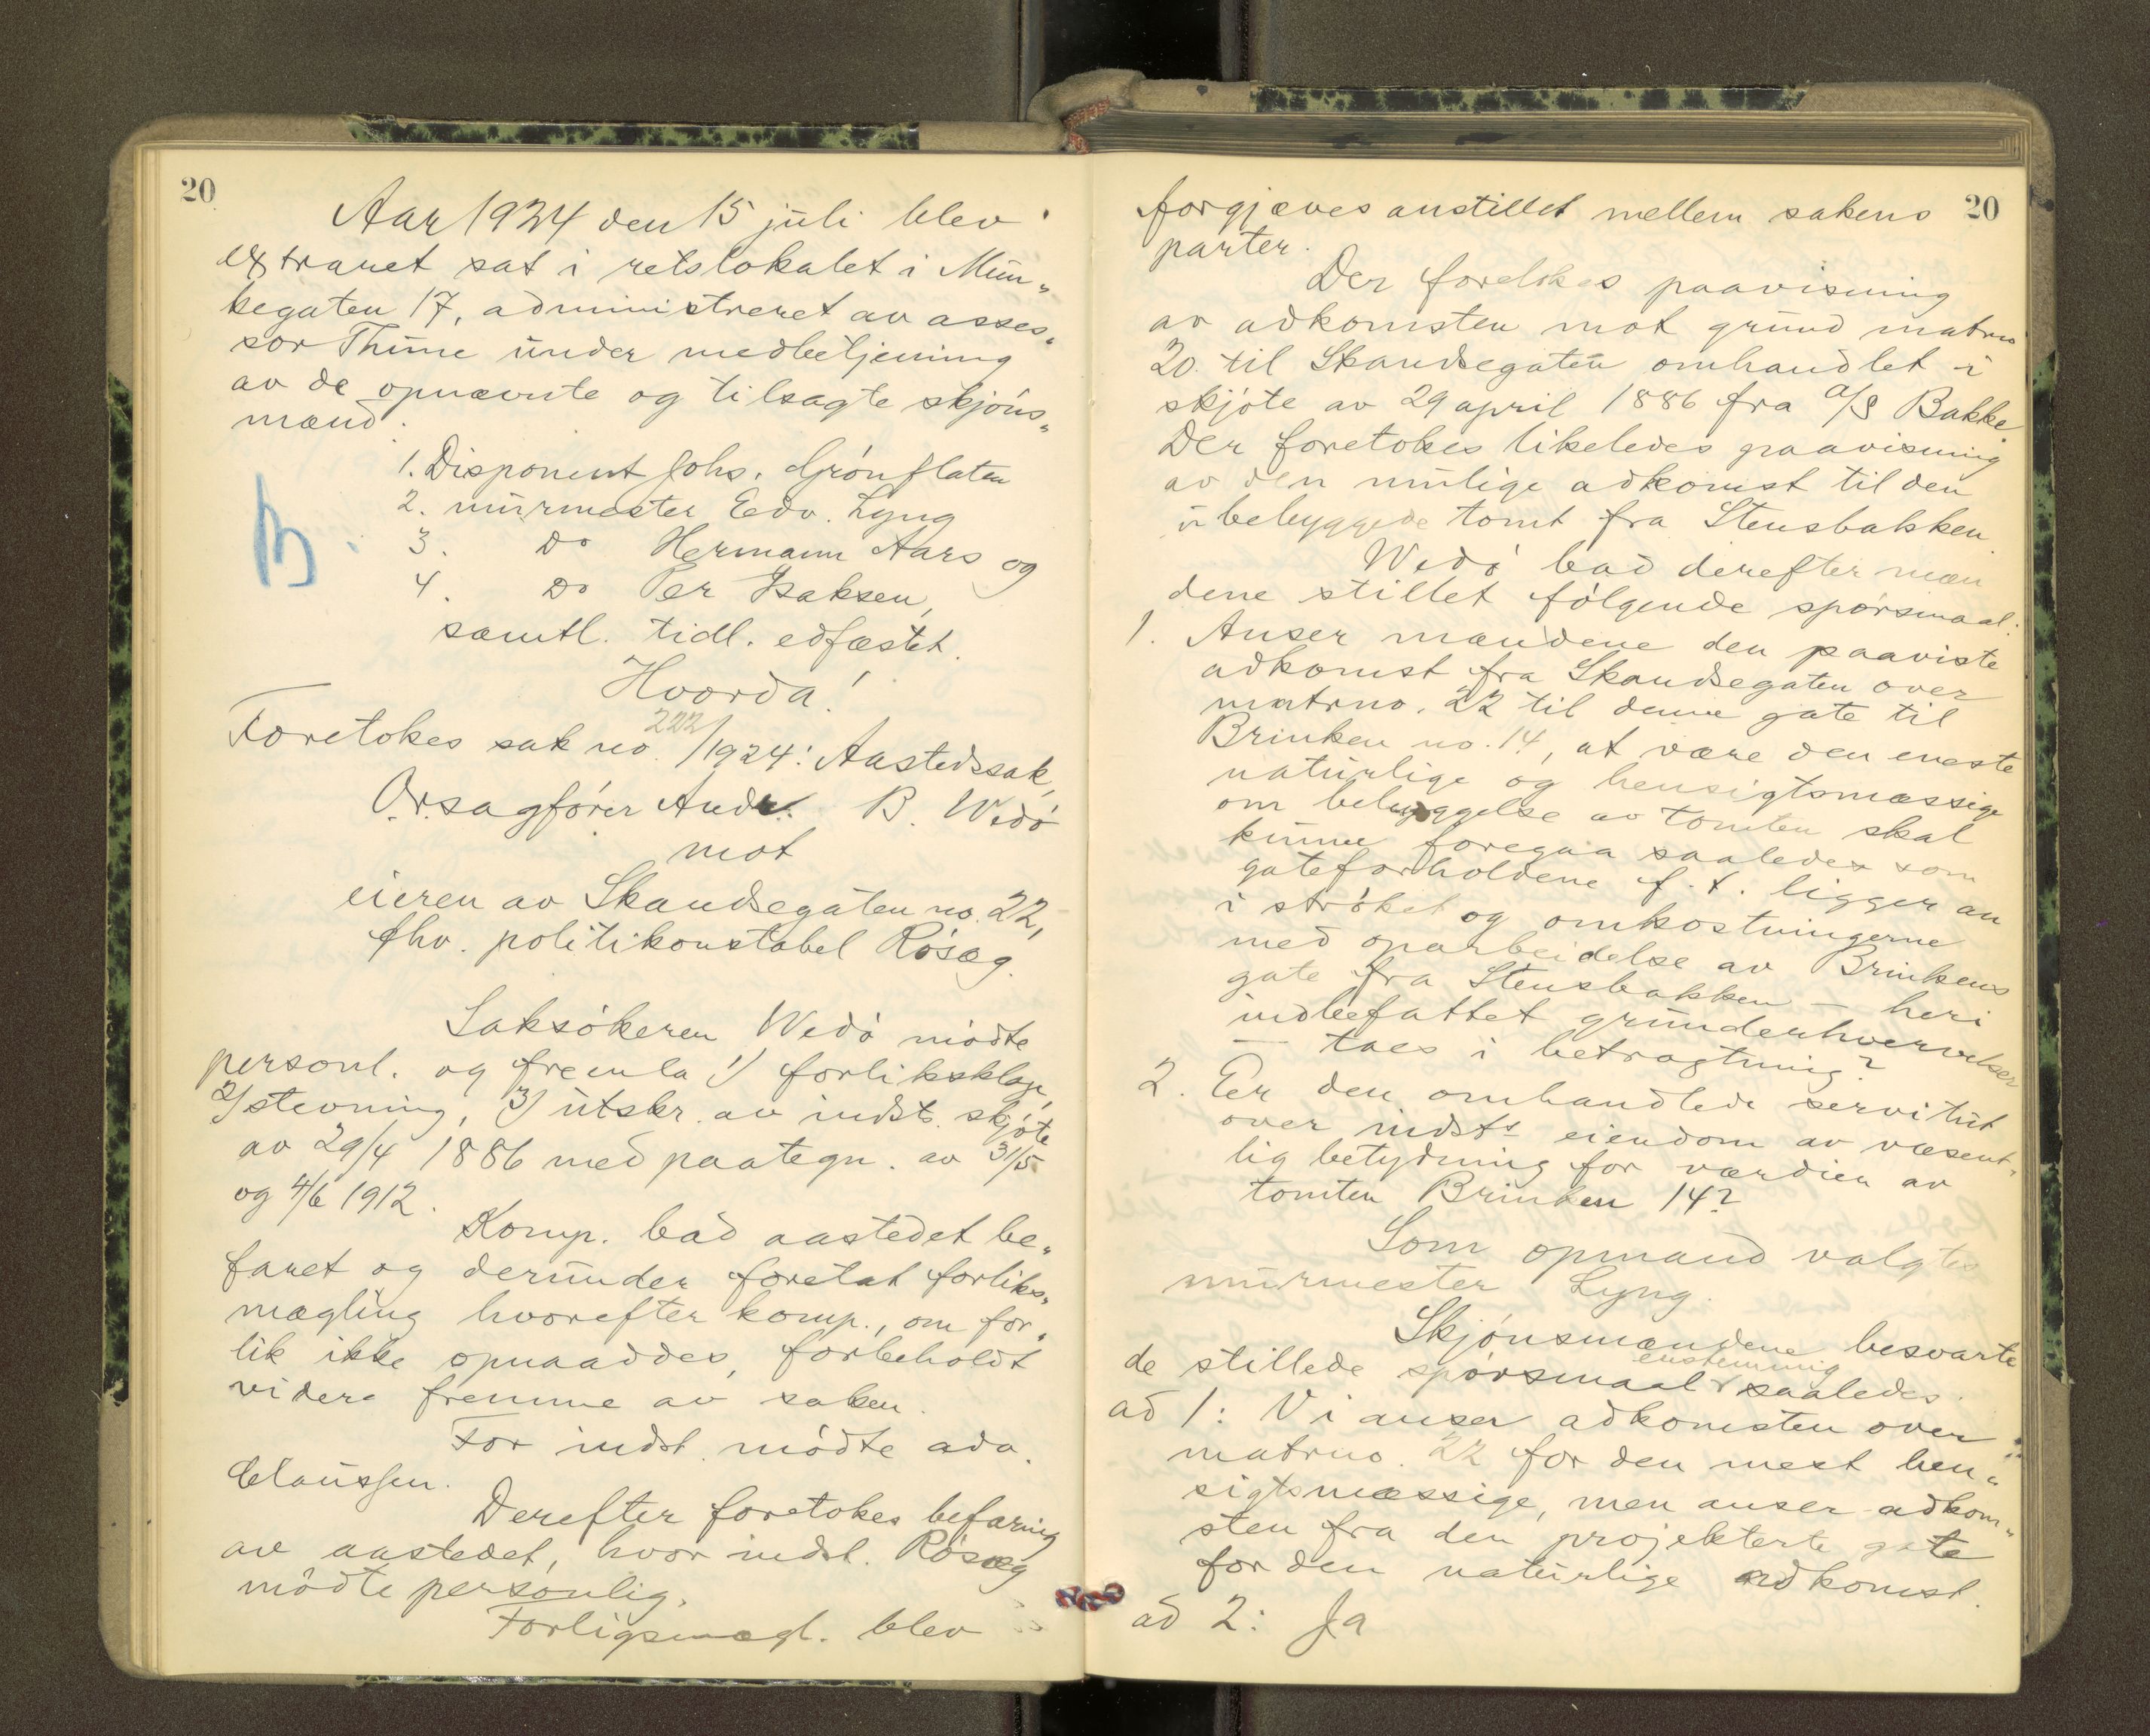 20
Aar 1924 den 15 juli blev
extraret sat i retslokalet i Mun-
kegaten 17, administreret av asses-
sor Thune under medbetjening
av de opnævnte og tilsagte skjøns-
mænd:
1. Disponent Johs. Grønflaten
2. murmester Edv. Lyng
3. Do Hermann Aars og
4. Do Per Isaksen,
samtl. tidl. edfæstet.
B.
Hvorda!
Foretokes sak no. 222/1924: Aastedssak,
O.r.sagfører Andr. B. Wedø
mot
eieren av Skandsegaten no. 22,
fhv. politikonstabel Røsæg.
Saksøkeren Wedø mødte
personl. og fremla 1/ forliksklage,
2/ stevning, 3/ utskr. av indst. skjøte
av 29/4 1886 med paategn. av 31/5
og 4/6 1912.
Komp. bad aastedet be-
faret og derunder foretat forliks-
mægling hvorefter komp., om for-
lik ikke opnaaddes, forbeholdt
videre fremme av saken.
For indst. mødte adv.
Claussen.
Derefter foretokes befaring
av aastedet, hvor indst. Røsæg
mødte personlig.
Forligsmægl. blev
20
forgjæves anstillet mellem sakens
parter.
Der foretokes paavisning
av adkomsten mot grund matrno
20 til Skandsegaten omhandlet i
skjøte av 29 april 1886 fra a/s Bakke.
Der foretokes likeledes paavisning
av den mulige adkomst til den
ubebyggede tomt fra Stensbakken.
Wedø bad derefter mæn
dene stillet følgende spørsmaal:
1. Anser mændene den paaviste
adkomst fra Skandsegaten over
matrno. 22 til denne gate til
Brinken no. 14, at være den eneste
naturlige og hensigtsmæssige
om bebyggelse av tomten skal
kunne foregaa saaledes som
gateforholdene f. t. ligger an
i strøket og omkostningerne
med oparbeidelse av Brinkens
gate fra Stensbakken – heri
indbefattet grunderhvervelser
– taes i betragtning?
2. Er den omhandlede servitut
over indsts eiendom av væsent-
lig betydning for værdien av
tomten Brinken 14?
Som opmand valgtes
murmester Lyng.
Skjønsmændene besvarte
de stillede spørsmaal enstemmig saaledes:
ad 1: Vi anser adkomsten over
matrno. 22 for den mest hen-
sigtsmæssige, men anser adkom-
sten fra den projekterte gate
for den naturlige adkomst.
ad 2: Ja